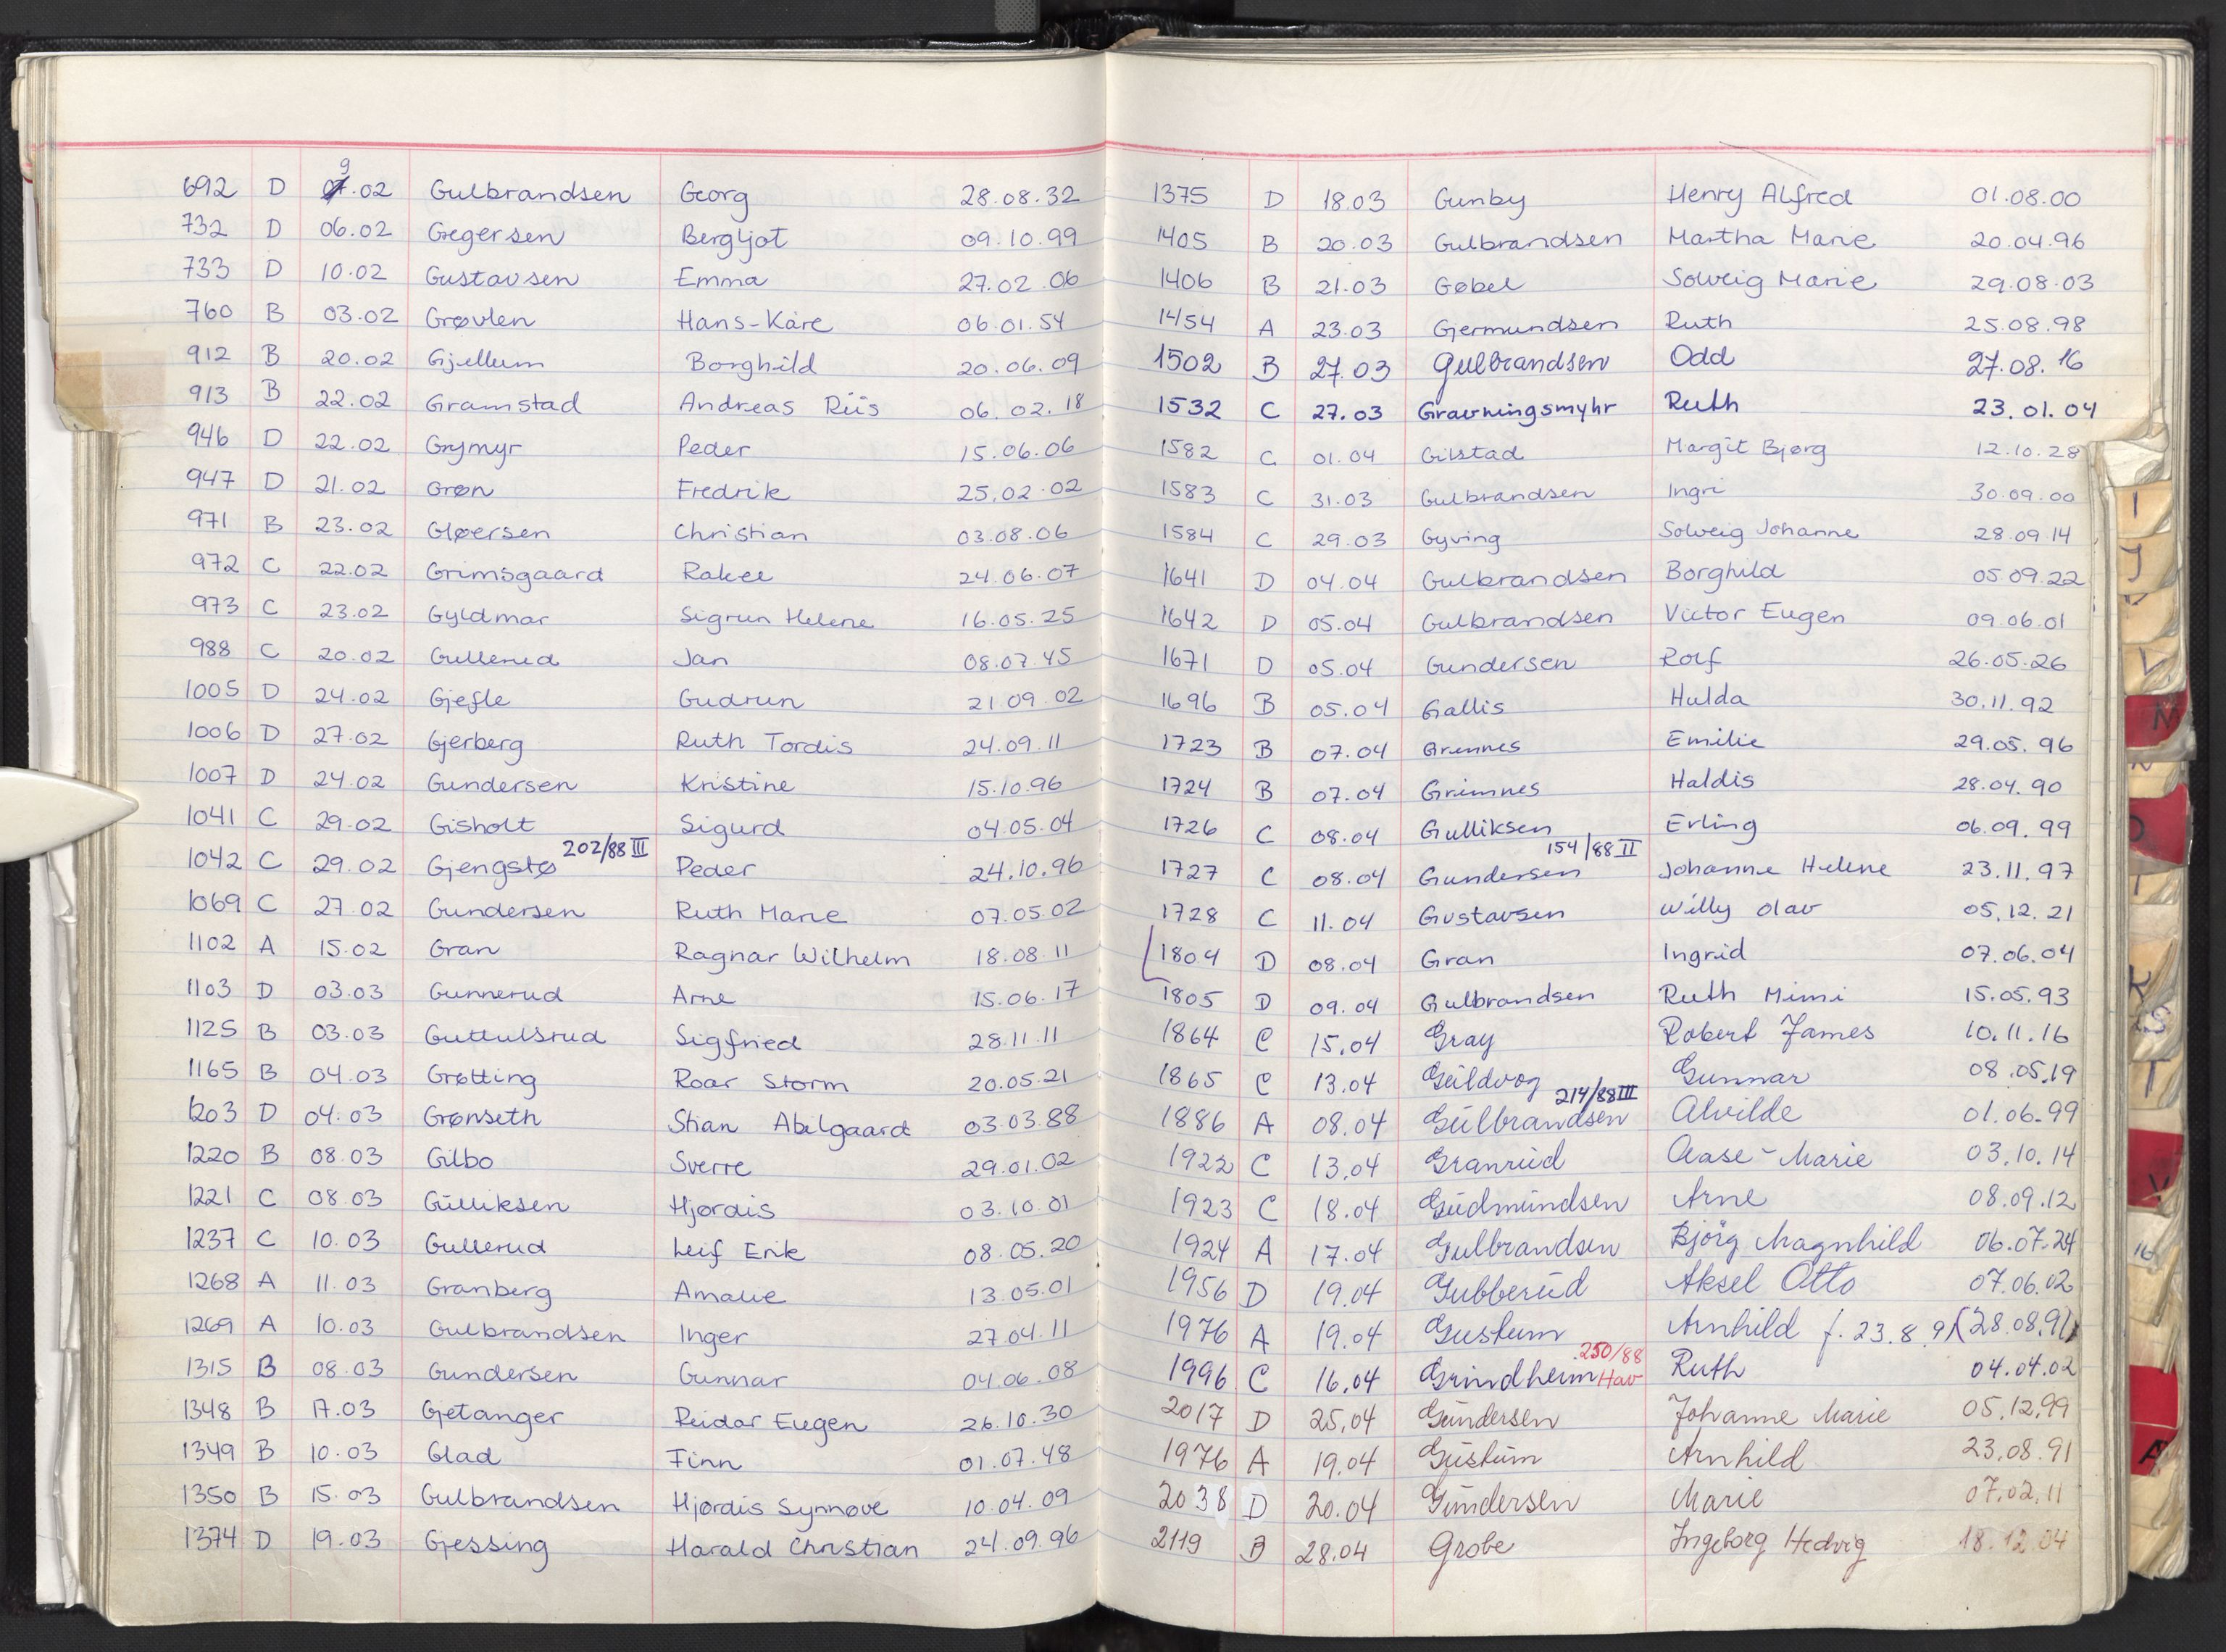 692 D 09.02 Gulbrandsen Georg 28.08.32
732 D 06.02 Gegersen Bergljot 09.10.99
733 D 10.02 Gustavsen Emma 27.02.06
760 B 03.02 Grøvlen Hans-Kåre 06.01.54
912 B 20.02 Gjellum Borghild 20.06.09
913 B 22.02 Gramstad Andreas Riis 06.02.18
946 D 22.02 Grymyr Peder 15.06.06
947 D 21.02 Grøn Fredrik 25.02.02
971 B 23.02 Gløersen Christian 03.08.06
972 C 22.02 Grimsgaard Rakel 24.06.07
973 C 23.02 Gyldmar Sigrun Helene 16.05.25
988 C 20.02 Gullerud Jan 08.07.45
1005 D 24.02 Gjefle Gudrun 21.09.02
1006 D 27.02 Gjerberg Ruth Tordis 24.09.11
1007 D 24.02 Gundersen Kristine 15.10.96
1041 C 29.02 Gisholt Sigurd 04.05.04
202/88 III
1042 C 29.02 Gjengstø Peder 24.10.96
1069 C 27.02 Gundersen Ruth Marie 07.05.02
1102 A 15.02 Gran Ragnar Wilhelm 18.08.11
1103 D 03.03 Gunnerud Arne 15.06.17
1125 B 03.03 Guttulsrud Sigfried 28.11.11
1165 B 04.03 Grøtting Roar Storm 20.05.21
1203 D 04.03 Grønseth Stian Abilgaard 03.03.88
1220 B 08.03 Gilbo Sverre 29.01.02
1221 C 08.03 Gulliksen Hjørdis 03.10.01
1237 C 10.03 Gullerud Leif Erik 08.05.20
1268 A 11.03 Granberg Amalie 13.05.01
1269 A 10.03 Gulbrandsen Inger 27.04.11
1315 B 08.03 Gundersen Gunnar 04.06.08
1348 B 17.03 Gjetanger Reidar Eugen 26.10.30
1349 B 10.03 Glad Finn 01.07.48
1350 B 15.03 Gulbrandsen Hjørdis Synnøve 10.04.09
1374 D 19.03 Gjessing Harald Christian 24.09.96
1375 D 18.03 Gunby Henry Alfred 01.08.00
1405 B 20.03 Gulbrandsen Martha Marie 20.04.96
1406 B 21.03 Gøbel Solveig Marie 29.08.03
1454 A 23.03 Gjermundsen Ruth 25.08.98
1502 B 27.03 Gulbrandsen Odd 27.08.16
1532 C 27.03 Gravningsmyhr Ruth 23.01.04
1582 C 01.04 Gilstad Margit Bjørg 12.10.28
1583 C 31.03 Gulbrandsen Ingri 30.09.00
1584 C 29.03 Gyving Solveig Johanne 28.09.14
1641 D 04.04 Gulbrandsen Borghild 05.09.22
1642 D 05.04 Gulbrandsen Victor Eugen 09.06.01
1671 D 05.04 Gundersen Rolf 26.05.26
1696 B 05.04 Gallis Hulda 30.11.92
1723 B 07.04 Emilie 29.05.96
1724 B 07.04 Grimnes Haldis 28.04.90
1726 C 08.04 Gulliksen Erling 06.09.99
154/88 II
1727 C 08.04 Gundersen Johanne Helene 23.11.97
1728 C 11.04 Gustavsen Willy Olav 05.12.21
1804 D 08.04 Gran Ingrid 07.06.04
1805 D 09.04 Gulbrandsen Ruth Mimi 15.05.93
1864 C 15.04 Gray Robert James 10.11.16
1865 C 13.04 Guldvog Gunnar 08.05.19
214/88 III
1886 A 08.04 Gulbrandsen Alvilde 01.06.99
1922 C 13.04 Granrud Aase-Marie 03.10.14
1923 C 18.04 Gudmundsen Arne 08.09.12
1924 A 17.04 Gulbrandsen Bjørg Magnhild 06.07.24
1956 D 19.04 Gubberud Aksel Otto 07.06.02
1976 A 19.04 Gustum Arnhild f. 23.8.91 (28.08.91)
250/88
1996 C 16.04 Grindheim Hav Ruth 04.04.02
2017 D 25.04 Gundersen Johanne Marie 05.12.99
1976 A 19.04 Gustum Arnhild 23.08.91
2038 D 20.04 Gundersen Marie 07.02.11
2119 B 28.04 Grobe Ingeborg Hedvig 18.12.04
I
J
M
T